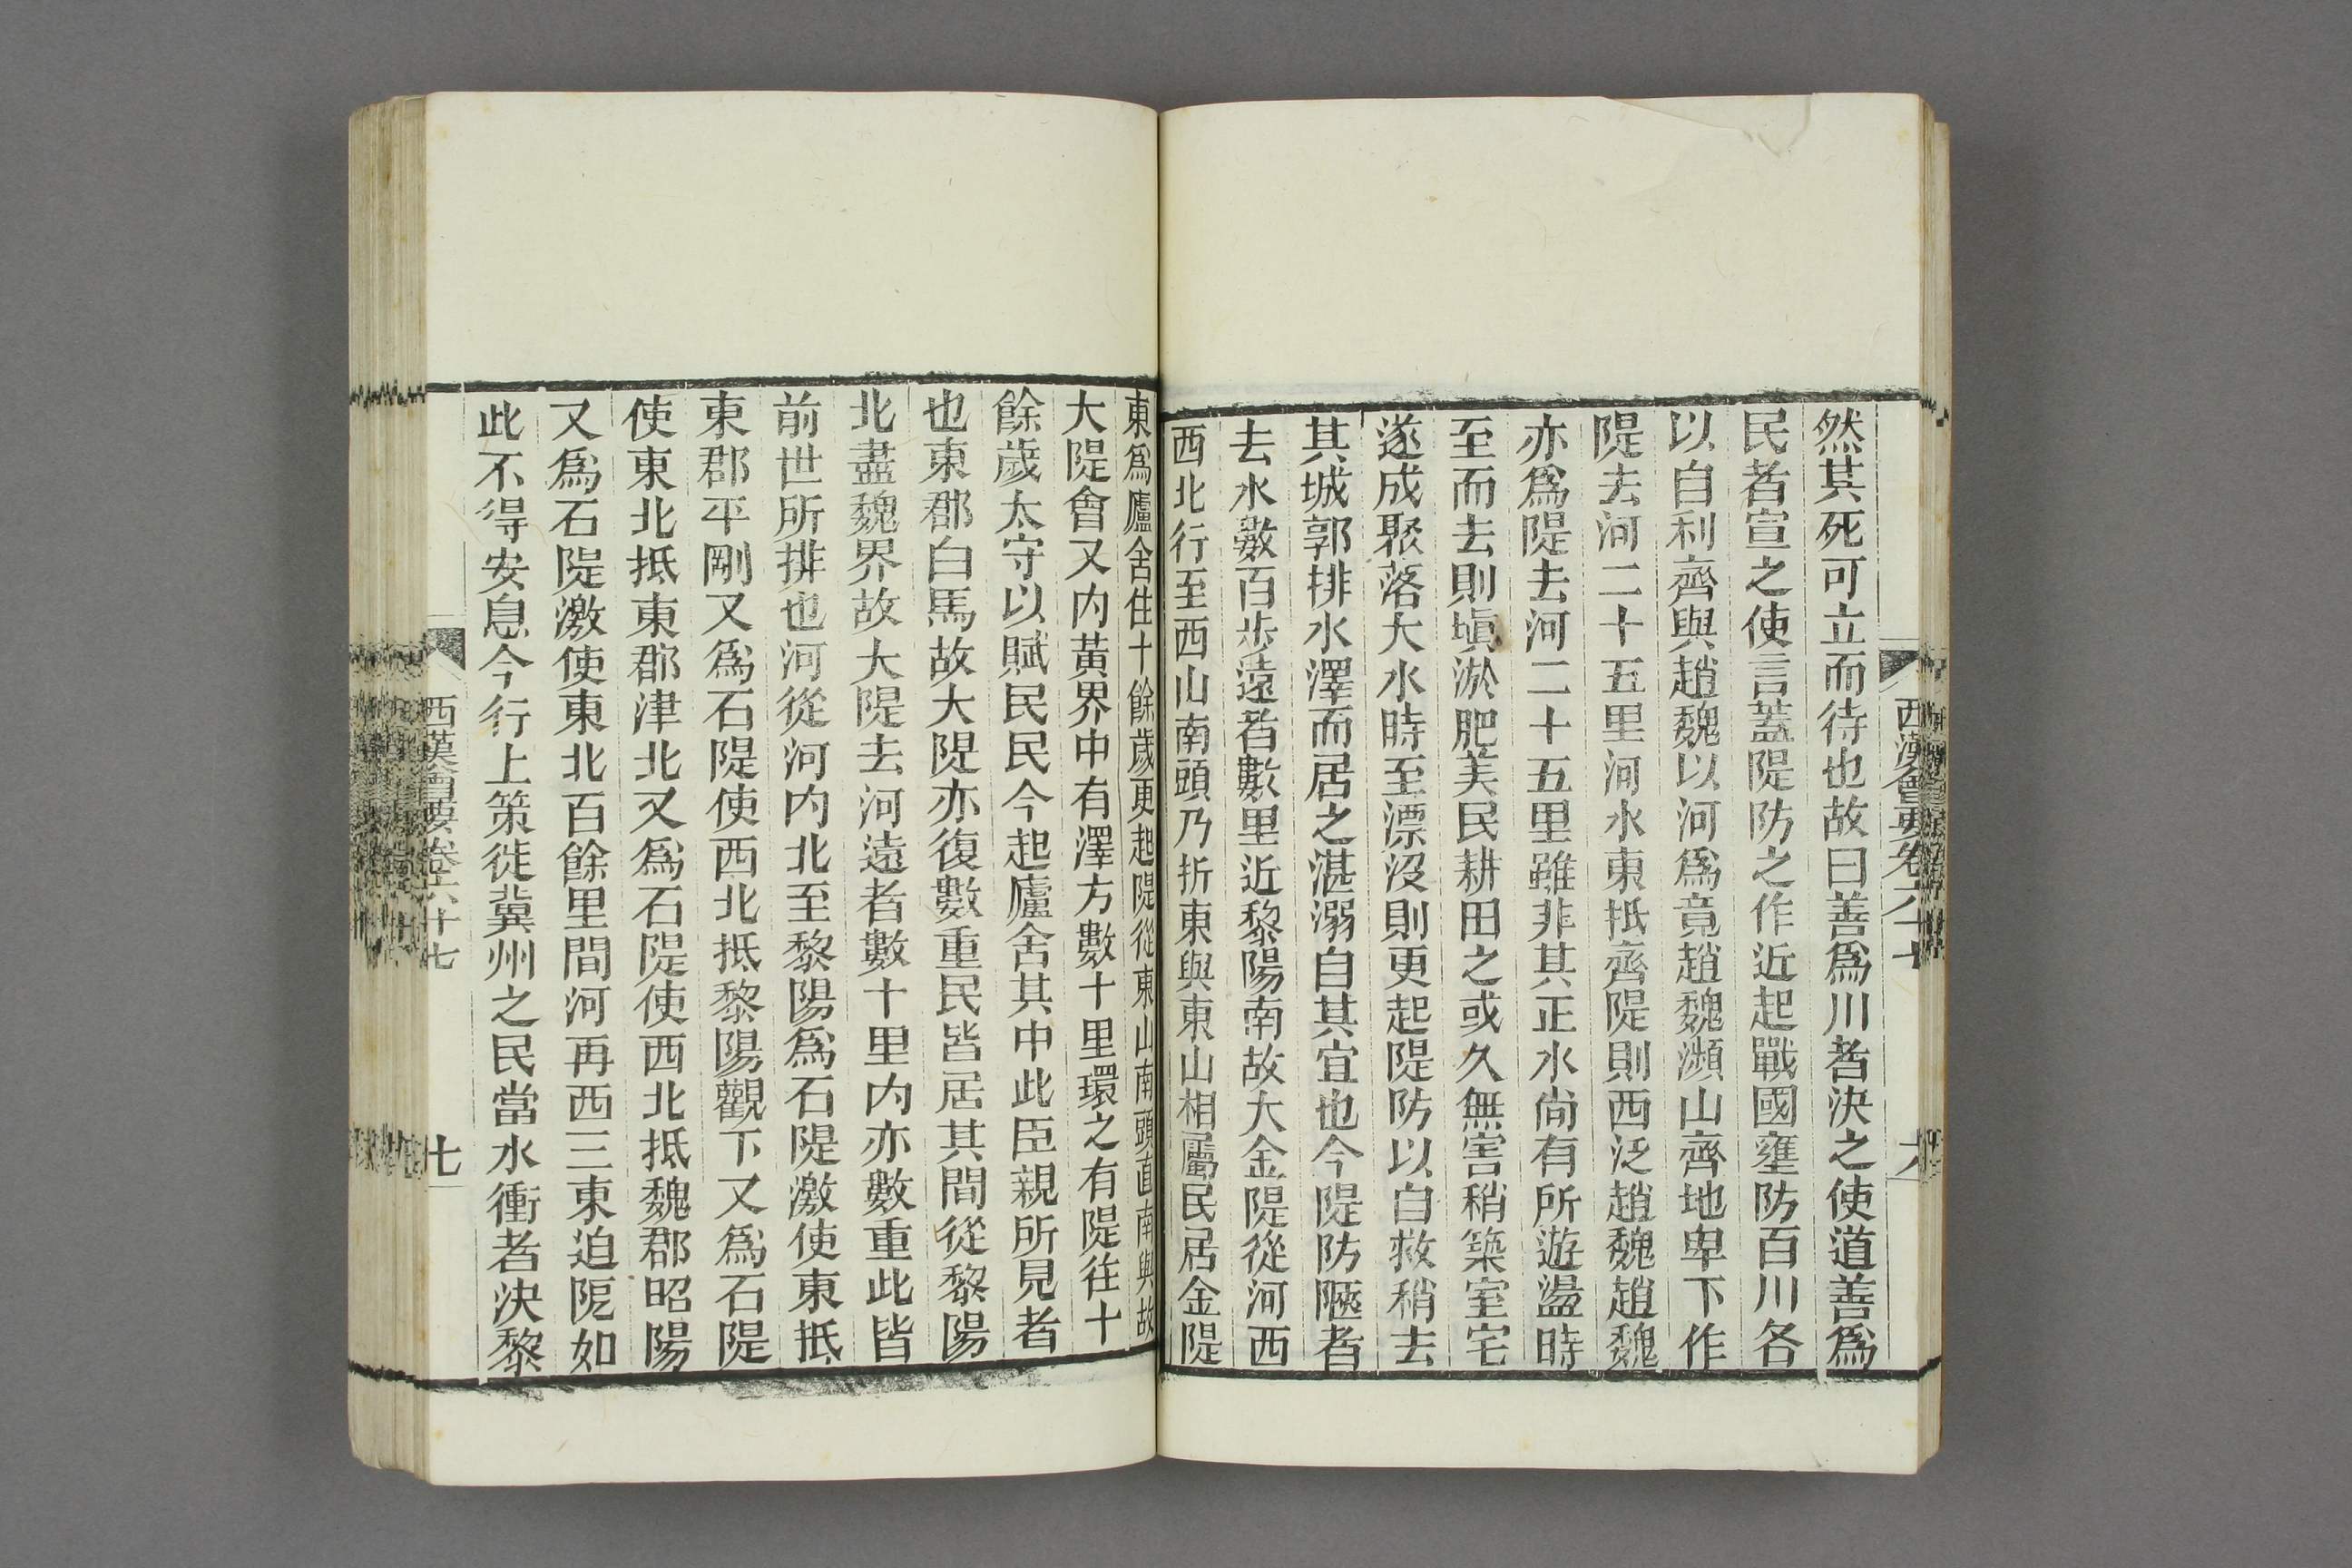 西漢會要卷六十七
六
然其死可立而待也故曰善爲川者決之使道善爲
民者宣之使言蓋隄防之作近起戰國壅防百川各
以自利齊與趙魏以河爲竟趙魏瀕山齊地卑下作
隄去河二十五里河水東抵齊隄則西泛趙魏趙魏
亦爲隄去河二十五里雖非其正水尚有所遊盪時
至而去則塡淤肥美民耕田之或久無害稍築室宅
遂成聚落大水時至漂沒則更起隄防以自救稍去
其城郭排水澤而居之湛溺自其宜也今隄防陿者
去水數百步遠者數里近黎陽南故大金隄從河西
西北行至西山南頭乃折東與東山相屬民居金隄
東爲廬舍住十餘歲更起隄從東山南頭直南與故
大隄會又內黃界中有澤方數十里環之有隄往十
餘歲太守以賦民民今起廬舍其中此臣親所見者
也東郡白馬故大隄亦復數重民皆居其間從黎陽
北盡魏界故大隄去河遠者數十里內亦數重此皆
前世所排也河從河內北至黎陽爲石隄激使東抵
東郡平剛又爲石隄使西北抵黎陽觀下又爲石隄
使東北抵東郡津北又爲石隄使西北抵魏郡昭陽
又爲石隄激使東北百餘里間河再西三東迫阨如
此不得安息今行上策徙冀州之民當水衝者決黎
西漢會要卷六十七
七